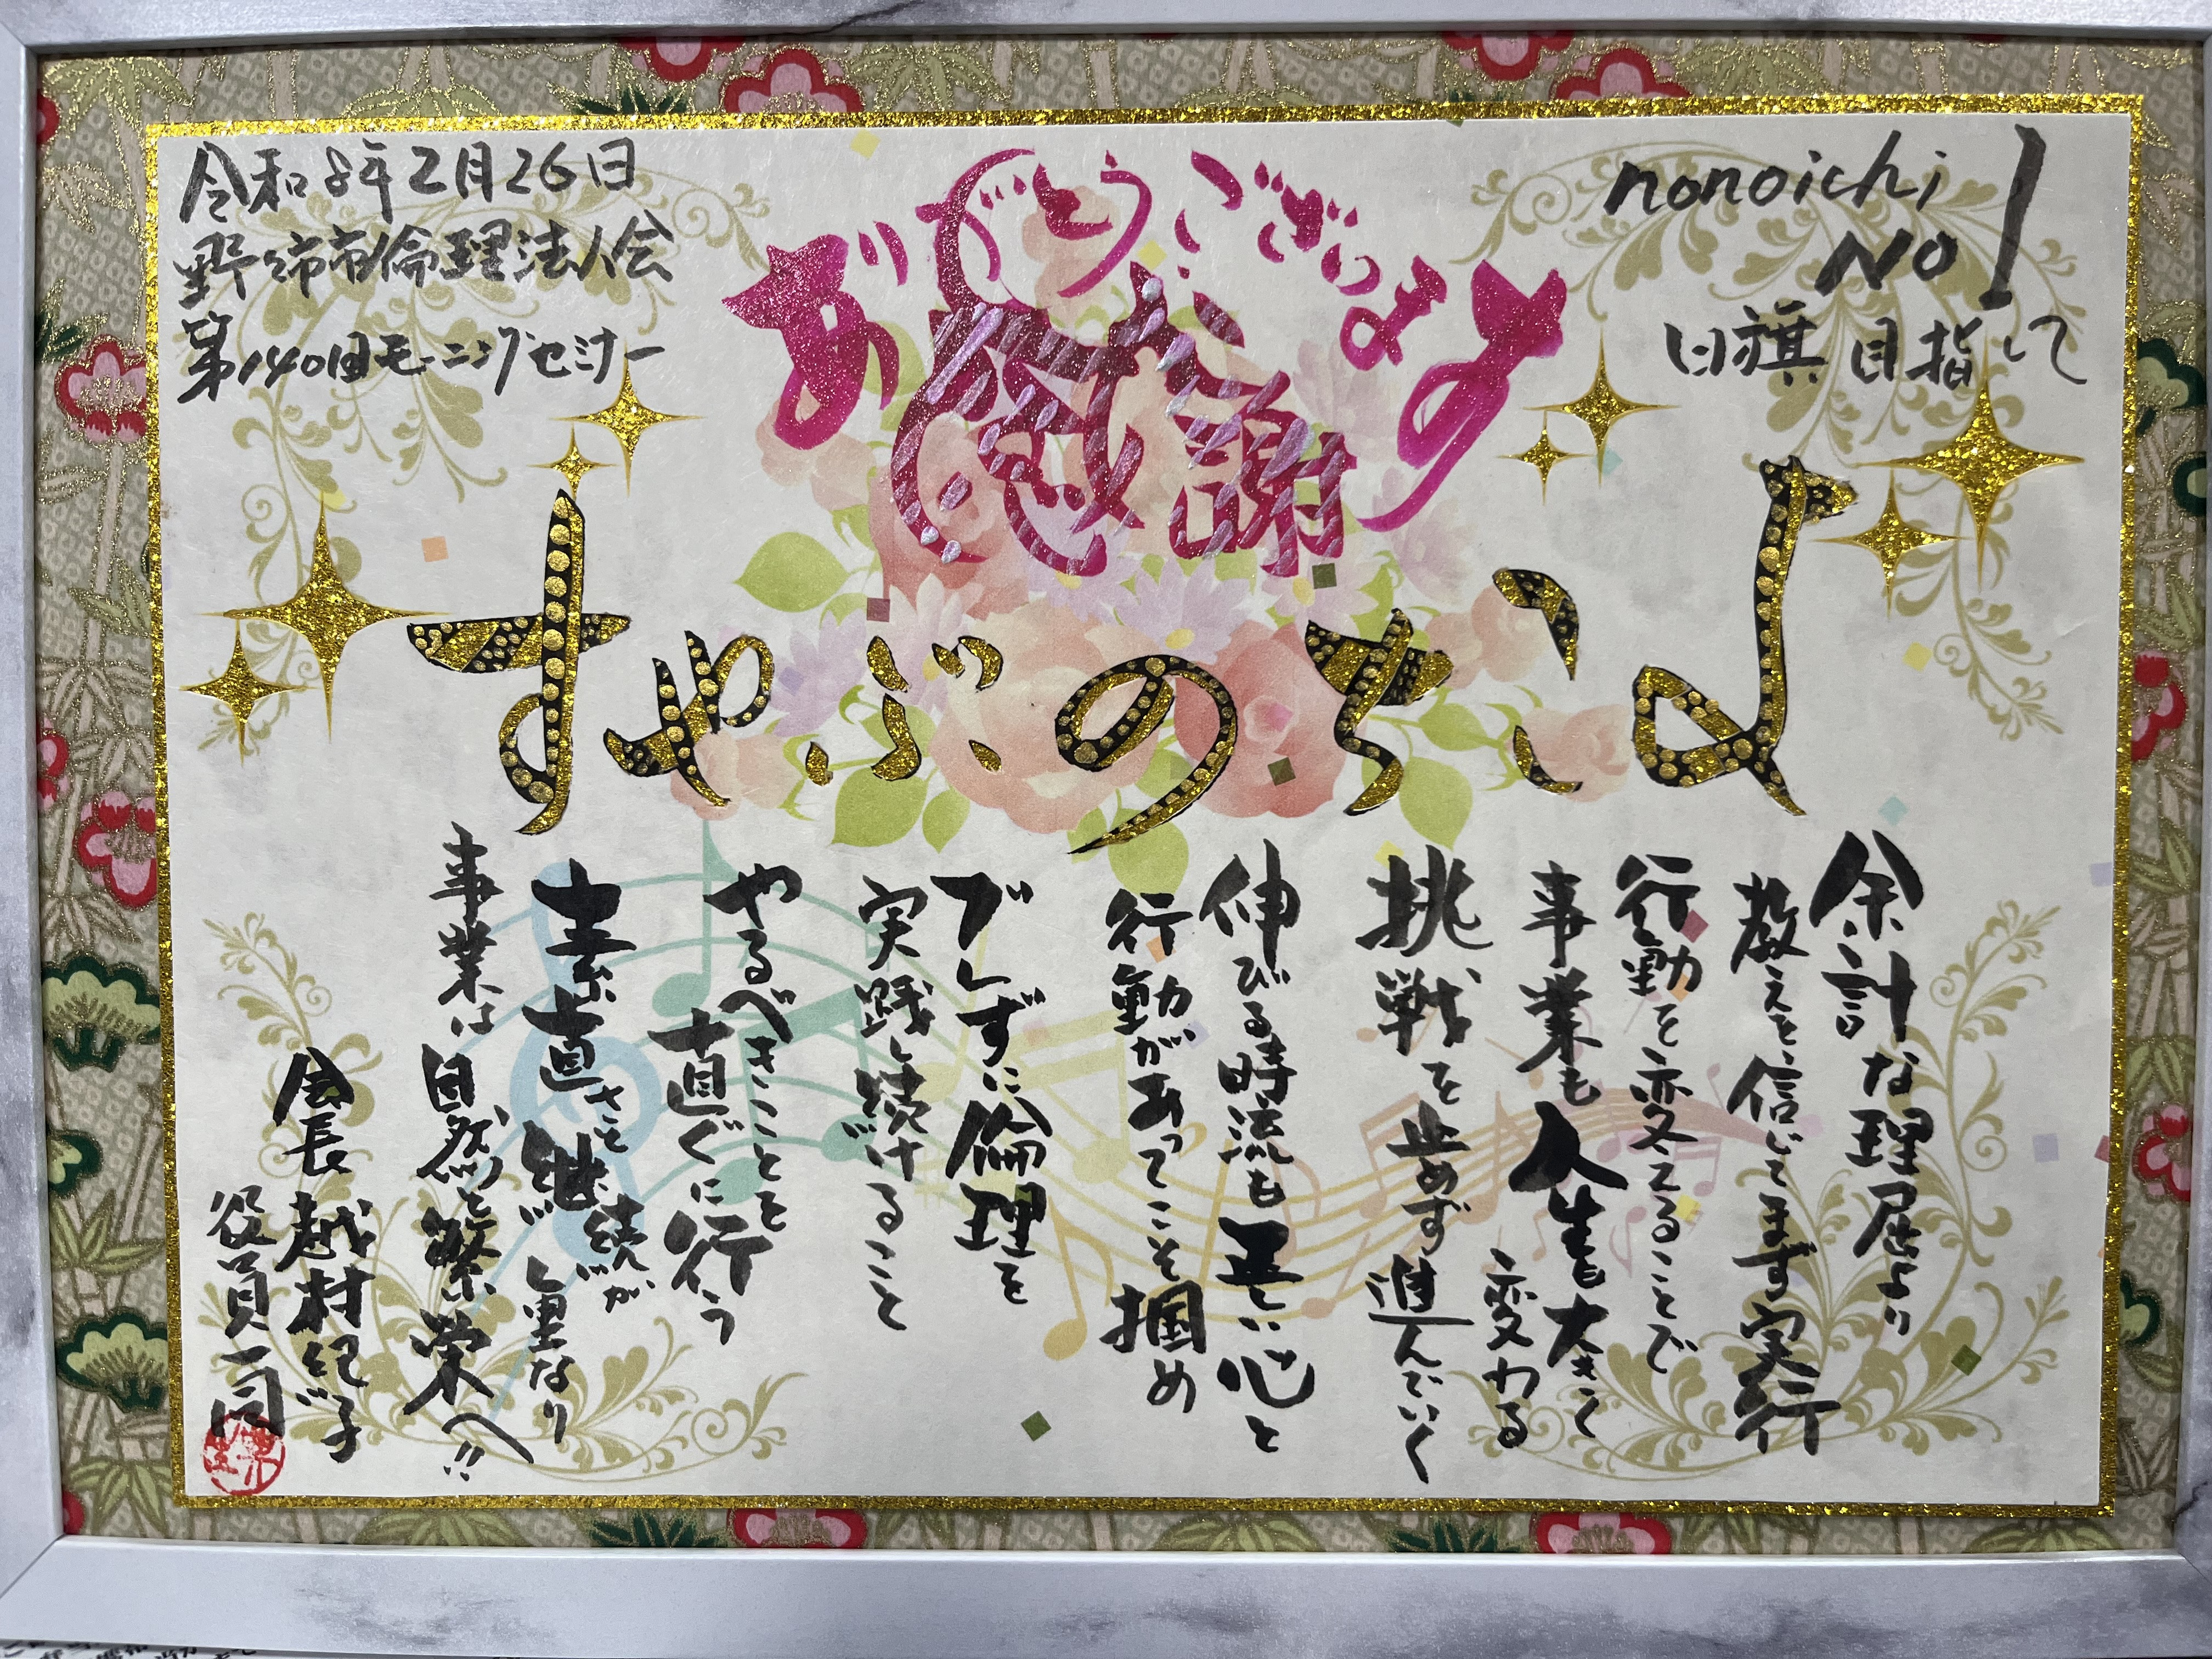 令和8年2月26日
野々市市倫理法人会
第140回モーニングセミナー
ありがとうございます
感謝
nonoichi
NO1
日旗目指して
すやぶのちいよ
余計な理屈より
教えを信じてまず実行
行動を変えることで
事業も人生も大きく
変わる
挑戦を止めず進んでいく
伸びる時流も正しい心と
行動があってこそ掴め
ブレずに倫理を
実践し続けること
やるべきことを
真直ぐに行う
素直さと継続が
重なり
事業は自然と繁栄へ!!
会長 越村とも子
役員一同